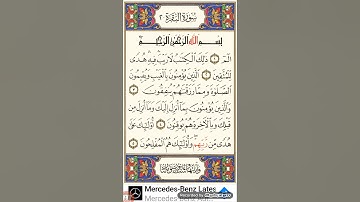 سورة البقرة ٢
بسم الله الرحمن الرحيم
الم ١ ذلك الكتب لا ريب فيه هدى
للمتقين ٢ الذين يؤمنون بالغيب ويقيمون
الصلوة ومما رزقنهم ينفقون ٣
والذين يؤمنون بما أنزل إليك وما أنزل من
قبلك وبالآخرة هم يوقنون ٤ أولئك على
هدى من ربهم وأولئك هم المفلحون ٥
Mercedes-Benz Lates
Mercedes-Benz Lates